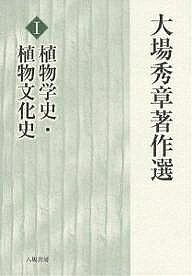 大場秀章著作選
I
植物学史・
植物文化史
八坂書房